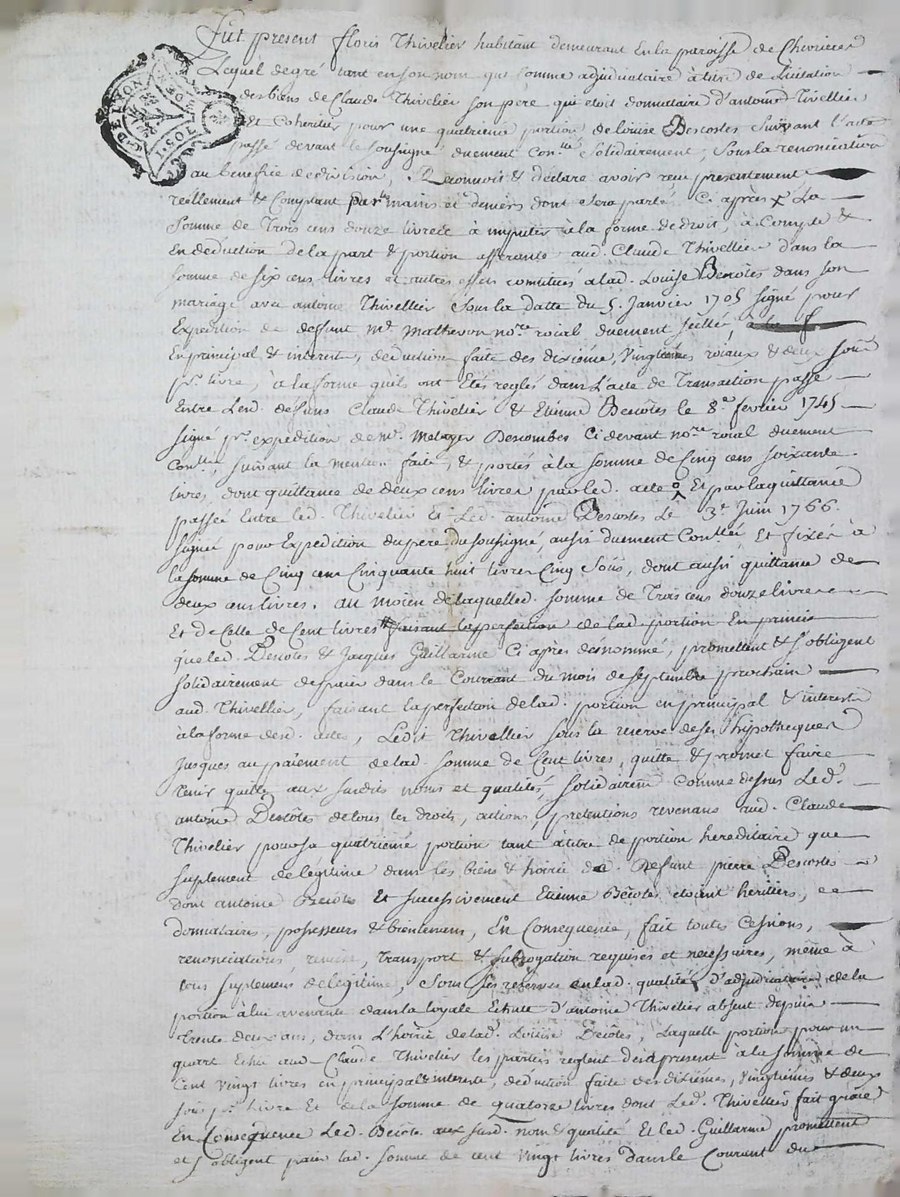 Fut present floris Thivelier habitant demeurant En la paroisse de Chevrieres
Lequel de gré tant en son nom que comme adjudicataire à titre de Licitation
des biens de Claude Thivelier son pere, qui etoit donnataire d'antoine Tivellier
et Coheritier pour une quatrieme portion de Louise Descostes Suivant l'acte
passé devant le soussigné duement Con.llé Solidairement, Sous la renonciation
au benefice de division, Reconnoit & declare avoir recu presentement
reellement & Comptant par les mains et deniers dont sera parlé Ci après La
Somme de Trois cens douze livres à imputer à la forme de droit, à Compte &
En deduction de la part & portion afferante aud. Claude Thivellier dans la
Somme de six cens livres et autres effets constitués a lad. Louise Descôtes dans son
mariage avec antoine Thivellier Sous la datte du 5. Janvier 1705 signé pour
Expedition de deffunt m.e Mathevon no.re roial duement scellé,
En principal & interest, deduction faite des dixiéme, Vingtiémes roiaux & deux sous
p.r livre, à la forme qu'ils ont Etés reglés dans L'acte de Transaction passé
Entre Led. deffuns Claude Thivelier & Etienne Descôtes le 8.e fevrier 1745
signé p.r expedition de m.e Descombes Ci devant no.re roial duement
Con.llé, suivant la mention faite, & portés à la somme de Cinq cens soixante
livres dont quittance de deux cens livres par led. acte Et par la quittance
passée Entre led Thivelier Et Led. antoine Descostes Le 3.e Juin 1766.
Signée pour Expedition du pere du soussigné, aussi duement Con.llée Et fixés à
la somme de Cinq cens Cinquante huit livres Cinq sous, dont aussi quittance de
deux cens livres. au moien de laquelle d. somme de Trois cens douze livres
Et de Celle de Cent livres faisant la perfection de lad. portion En principal
que led. Descôtes & Jacques Guillarme Ci après dénommé, promettent & s'obligent
solidairement de paier dans le Courrant du mois de septembre prochain
aud. Thivellier, faisant la perfection de lad. portion en principal & interest
à la forme desd. actes, Ledit Thivellier sous la reserve de ses hypotheques
jusques au paiement de lad. somme de Cent livres, quitte & promet faire
tenir quitte, aux susdits noms et qualités, solidairem.t Comme dessus Led.
antoine Descôtes de tous les droits, actions, pretentions revenans aud. Claude
Thivelier pour sa quatrieme portion tant à titre de portion hereditaire que
suplement de legitime dans les biens & hoirie de deffunt pierre Descostes
dont antoine Descôtes Et successivement Etienne Descôtes etoient heritiers,
donnataires, possesseurs & bientenans, En Consequence, fait toutes Cessions,
renonciations, remise, Transport & subrogation requises et necessaires, même à
tous suplemens de legitime, Sous ses reserves en lad. qualité d'adjudicataire de la
portion à lui avenante dans la loyale Echute d'antoine Thivelier absent depuis
trente deux ans, dans L'hoirie de lad. Louise Descôtes, Laquelle portion pour un
quart Echu aud. Claude Thivelier les parties reglent dès à present à la somme de
Cent vingt livres en principal & interests, deduction faite des dixiémes, vingtiémes & deux
sous p.r livre Et de la somme de quatorze livres dont Led. Thivellier fait grace
En Conséquence Led. Descôte aux susd. nom & qualité Et led. Guillarme promettent
et s'obligent paier lad. somme de cent vingt livres dans le Courant du